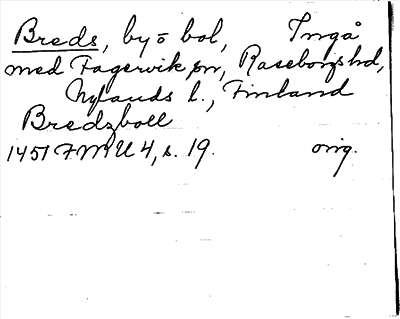 Breds, by o bol, Ingå
med Fagervik sn, Raseborgs hd,
Nylands l., Finland
Bredzboll
1451 FMU 4, s. 19. orig.